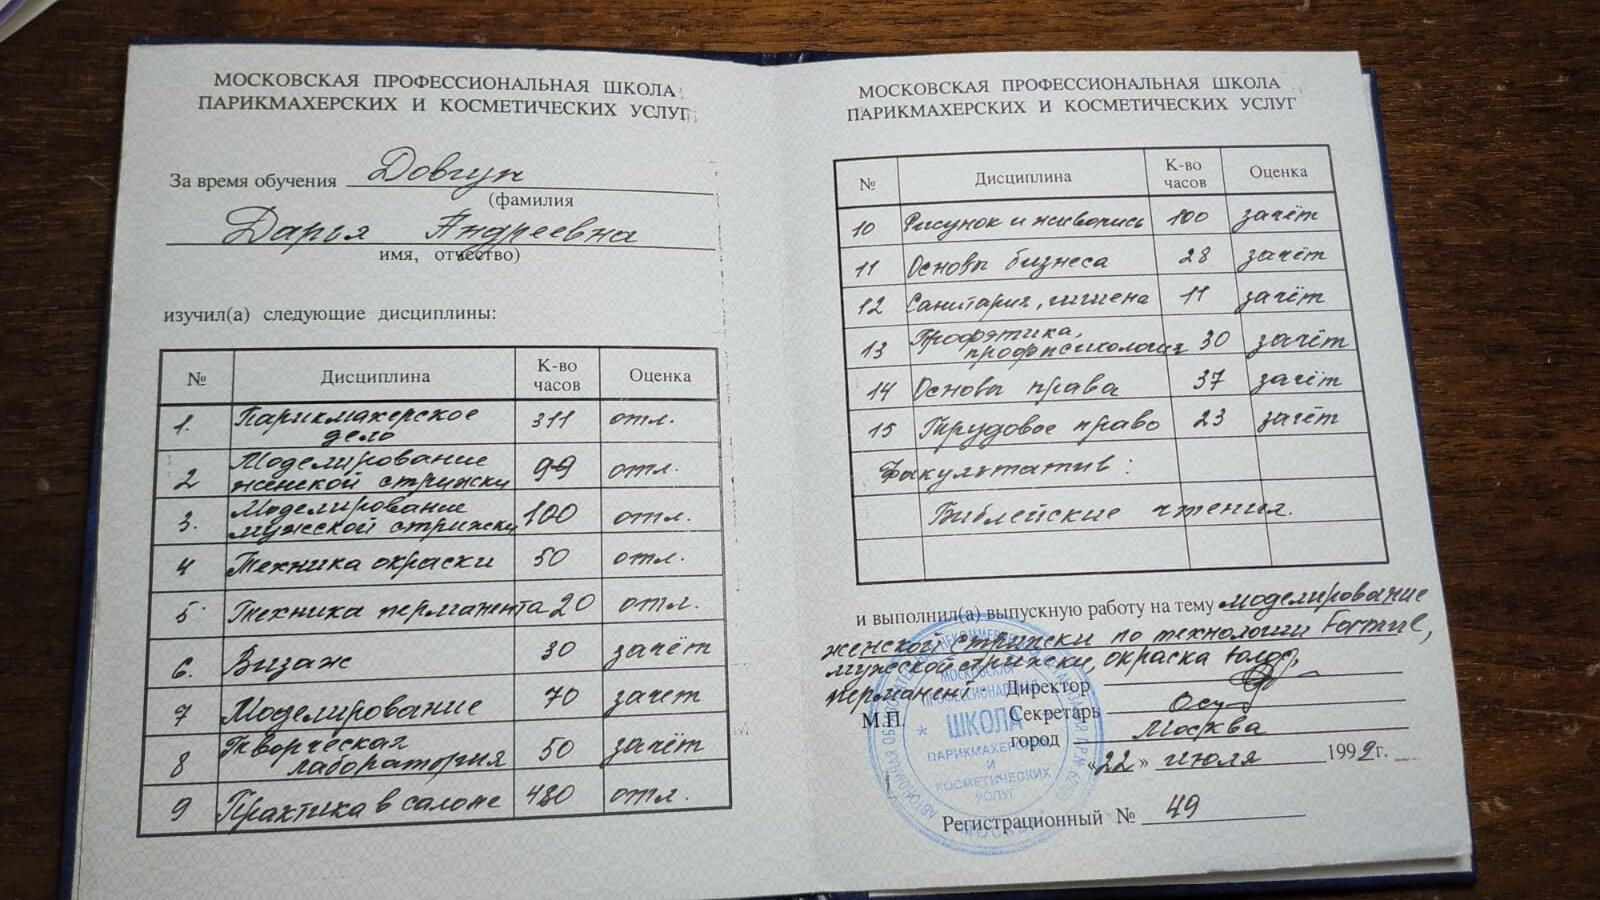 МОСКОВСКАЯ ПРОФЕССИОНАЛЬНАЯ ШКОЛА
ПАРИКМАХЕРСКИХ И КОСМЕТИЧЕСКИХ УСЛУГ
За время обучения Довгуп
(фамилия
Дарья Андреевна
имя, отчество)
изучил(а) следующие дисциплины:
№ Дисциплина К-во часов Оценка
1. Парикмахерское дело 311 отл.
2 Моделирование женской стрижки 99 отл.
3. Моделирование мужской стрижки 100 отл.
4 Техника окраски 50 отл.
5. Техника перманента 20 отл.
6. Визаж 30 зачёт
7 Моделирование 70 зачет
8 Творческая лаборатория 50 зачёт
9 Практика в салоне 480 отл.
МОСКОВСКАЯ ПРОФЕССИОНАЛЬНАЯ ШКОЛА
ПАРИКМАХЕРСКИХ И КОСМЕТИЧЕСКИХ УСЛУГ
№ Дисциплина К-во часов Оценка
10 Рисунок и живопись 100 зачёт
11 Основы бизнеса 28 зачёт
12 Санитария, гигиена 11 зачёт
13 Профэтика, профпсихология 30 зачёт
14 Основы права 37 зачёт
15 Трудовое право 23 зачёт
Факультатив:
Библейские чтения.
и выполнил(а) выпускную работу на тему моделирование
женской стрижки по технологии
мужской стрижки, окраска
перманент. Директор
М.П. Секретарь
город Москва
«22» июля 1999г.
Регистрационный № 49
МОСКОВСКАЯ
ПРОФЕССИОНАЛЬНАЯ
ШКОЛА
ПАРИКМАХЕРСКИХ
И
КОСМЕТИЧЕСКИХ
УСЛУГ